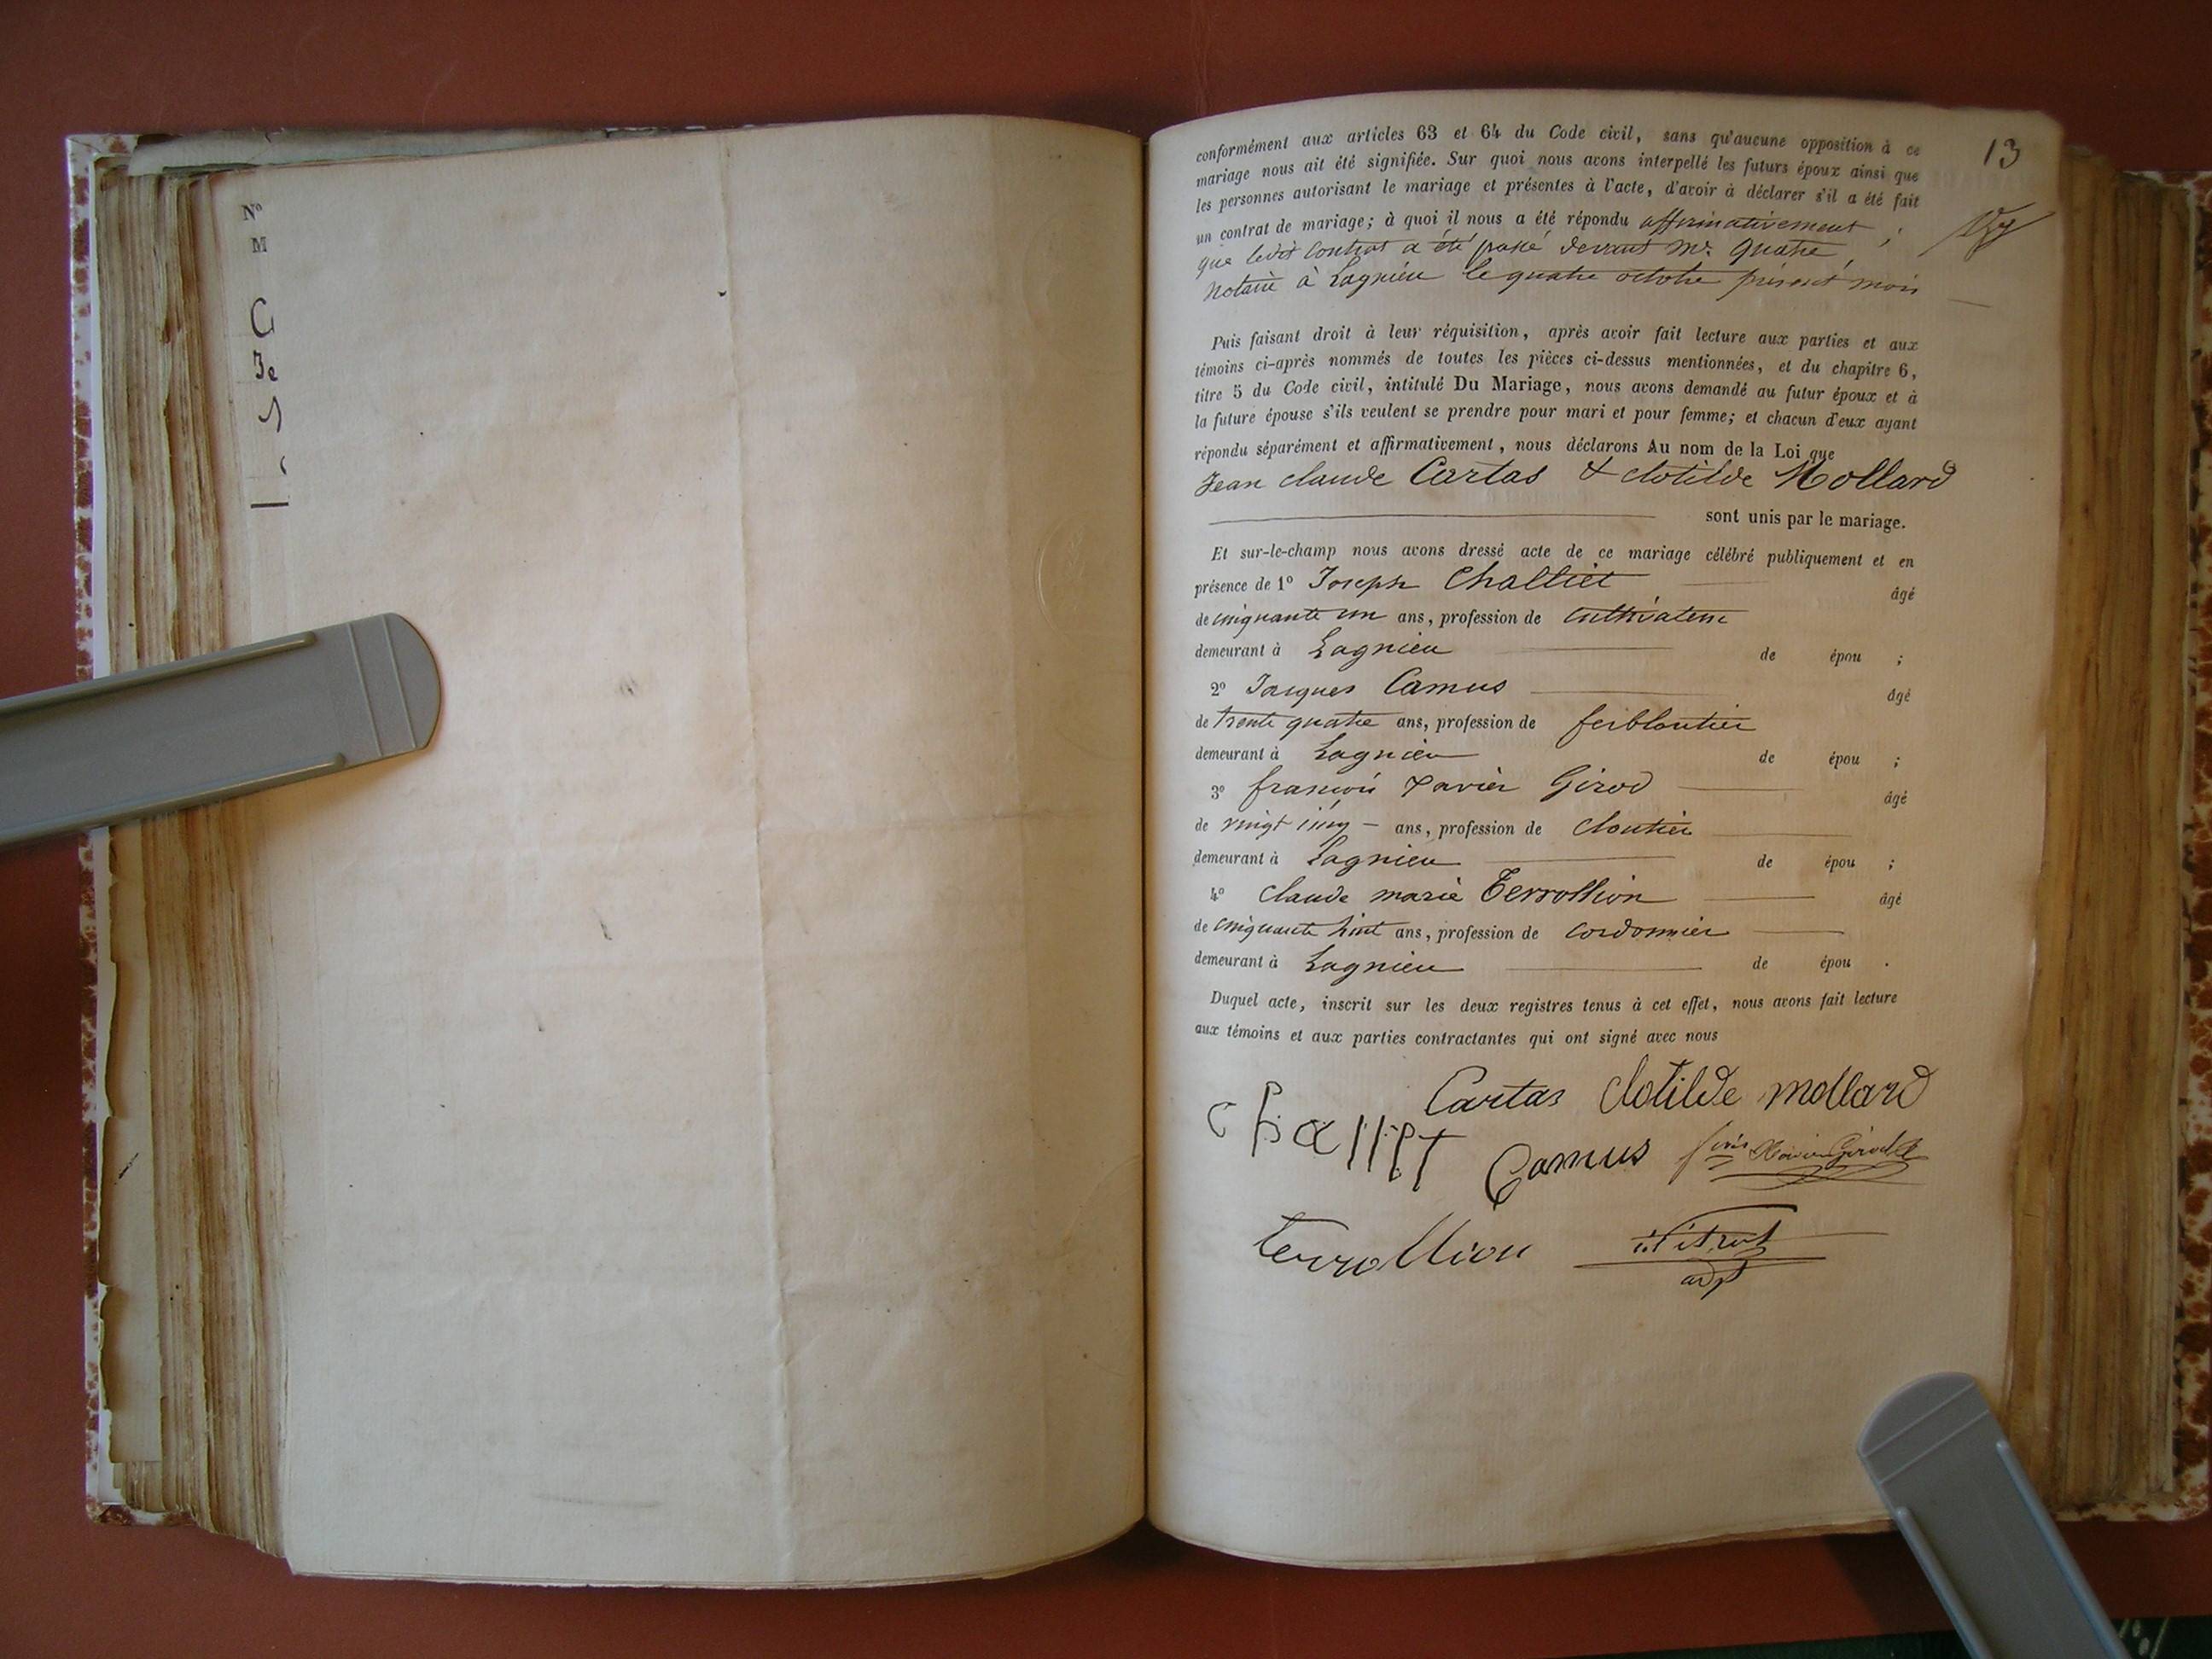 Nº
M
C
3e
13
conformément aux articles 63 et 64 du Code civil, sans qu'aucune opposition à ce
mariage nous ait été signifiée. Sur quoi nous avons interpellé les futurs époux ainsi que
les personnes autorisant le mariage et présentes à l'acte, d'avoir à déclarer s'il a été fait
un contrat de mariage; à quoi il nous a été répondu affirmativement ;
que ledit contrat a été passé devant Mr. Quatre,
notaire à Lagnieu le quatre octobre présent mois
Puis faisant droit à leur réquisition, après avoir fait lecture aux parties et aux
témoins ci-après nommés de toutes les pièces ci-dessus mentionnées, et du chapitre 6,
titre 5 du Code civil, intitulé Du Mariage, nous avons demandé au futur époux et à
la future épouse s'ils veulent se prendre pour mari et pour femme; et chacun d'eux ayant
répondu séparément et affirmativement, nous déclarons Au nom de la Loi que
Jean claude Cartas & clotilde Mollard
sont unis par le mariage.
Et sur-le-champ nous avons dressé acte de ce mariage célébré publiquement et en
présence de 1º Joseph Challiet âgé
de cinquante un ans, profession de cultivateur
demeurant à Lagnieu de épou ;
2º Jacques Camus âgé
de trente quatre ans, profession de ferblantier
demeurant à Lagnieu de épou ;
3º françois Xavier Girod âgé
de vingt cinq — ans, profession de cloutier
demeurant à Lagnieu de épou ;
4º claude marie Terrollion âgé
de cinquante huit ans, profession de cordonnier
demeurant à Lagnieu de épou .
Duquel acte, inscrit sur les deux registres tenus à cet effet, nous avons fait lecture
aux témoins et aux parties contractantes qui ont signé avec nous
Cartas Clotilde mollard
challiet
Camus
Terrollion
adjt